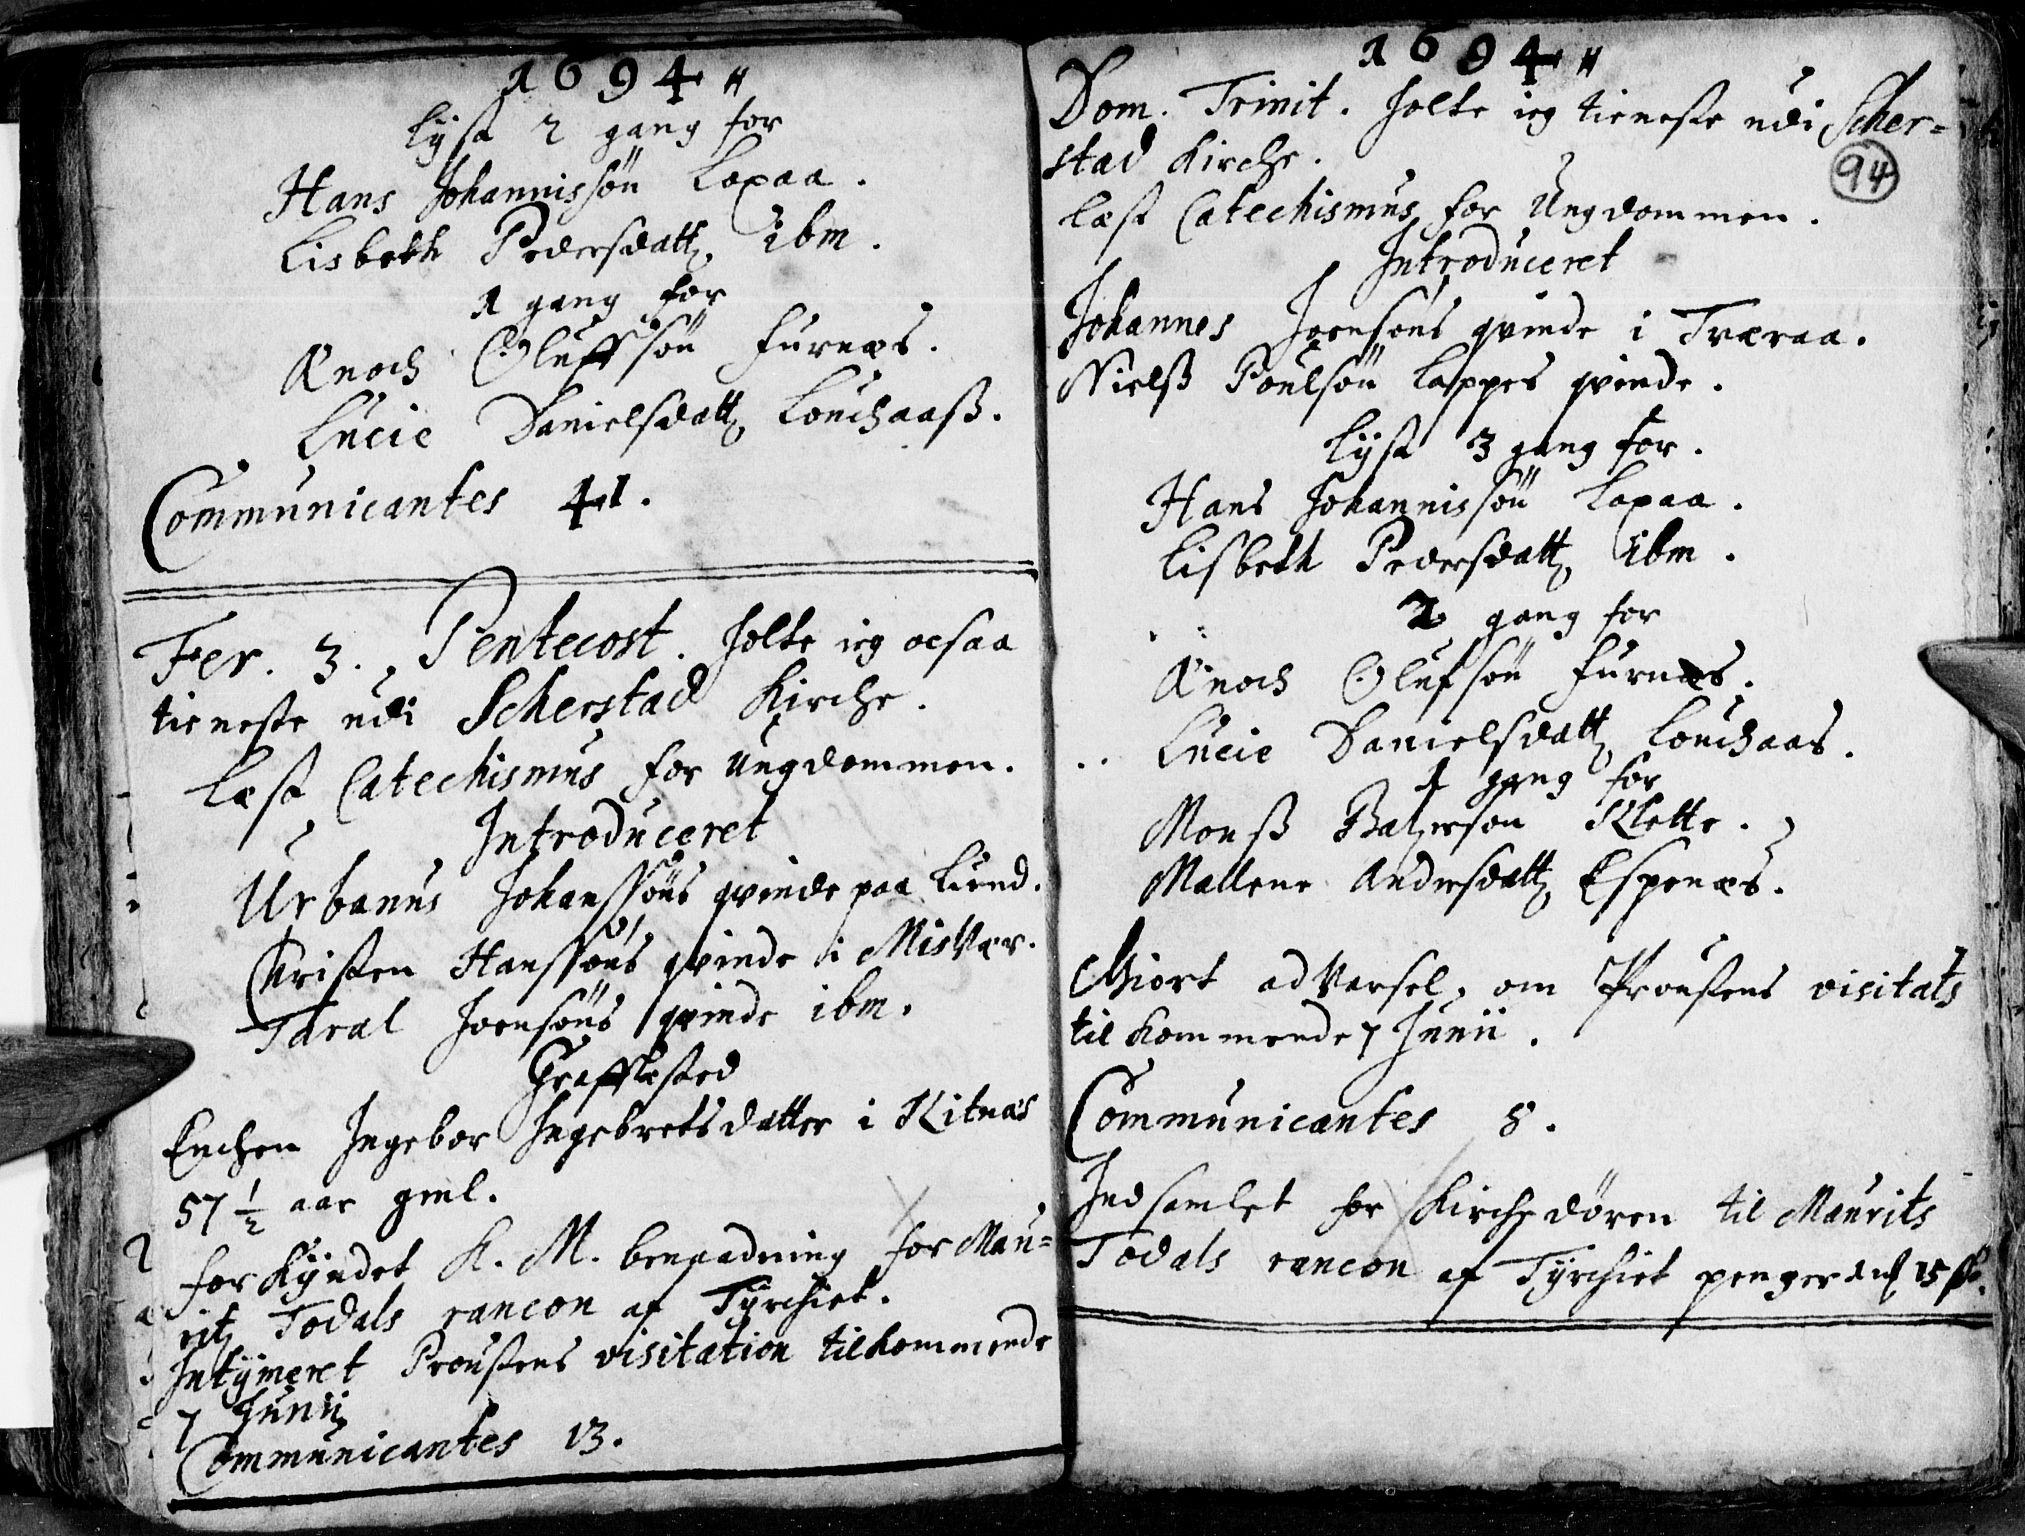 1694 "
Lyst 2 gang for
Hans Johannissøn Laxaa.
Lisbeth Pedersdatt, ibm.
1 gang for
Knoch Oluffsøn Furnæs.
Lucie Danielsdatt, Louchaaß.
Communicantes 41.
Fer. 3. Pentecost. holte ieg ocsaa
tieneste udi Scherstad Kirche.
Læst Catechismus for Ungdommen.
Introduceret
Urbanus Johanssøns qvinde paa Lund.
Kristen Hanssøns qvinde i Misvær.
Taral Joensøns qvinde ibm.
Graffkasted
Enchen Ingebor Ingebretsdatter i Kitnæs
57 1/2 aar gml.
forkyndet K. M. benaadning for Mau=
ritz Todals rancon af Tyrchiet.
Intymeret Proustens visitation tilkommende
7 Junii
Communicantes 13.
1694 "
94
Dom. Trinit. holte ieg tieneste udi Scher=
stad Kirche.
Læst Catechismus for Ungdommen.
Introduceret
Johannes Joensøns qvinde i Tværaa.
Nielß Poulsøn Lappes qvinde.
Lyst 3 gang for.
Hans Johannissøn Laxaa.
Lisbeth Pedersdatt, ibm.
2 gang for
Knoch Olufsøn Furnæs.
Lucie Danielsdatt, Louchaas.
1 gang for
Monß Baltzersøn Klette.
Mallene Andersdatt, Espenæs.
Giort advarsel, om Proustens visitats
til kommende 7 Junii.
Communicantes 8.
Indsamlet for Kirchedøren til Maurits
Todals rancon af Tyrchiet penger 15 ß.